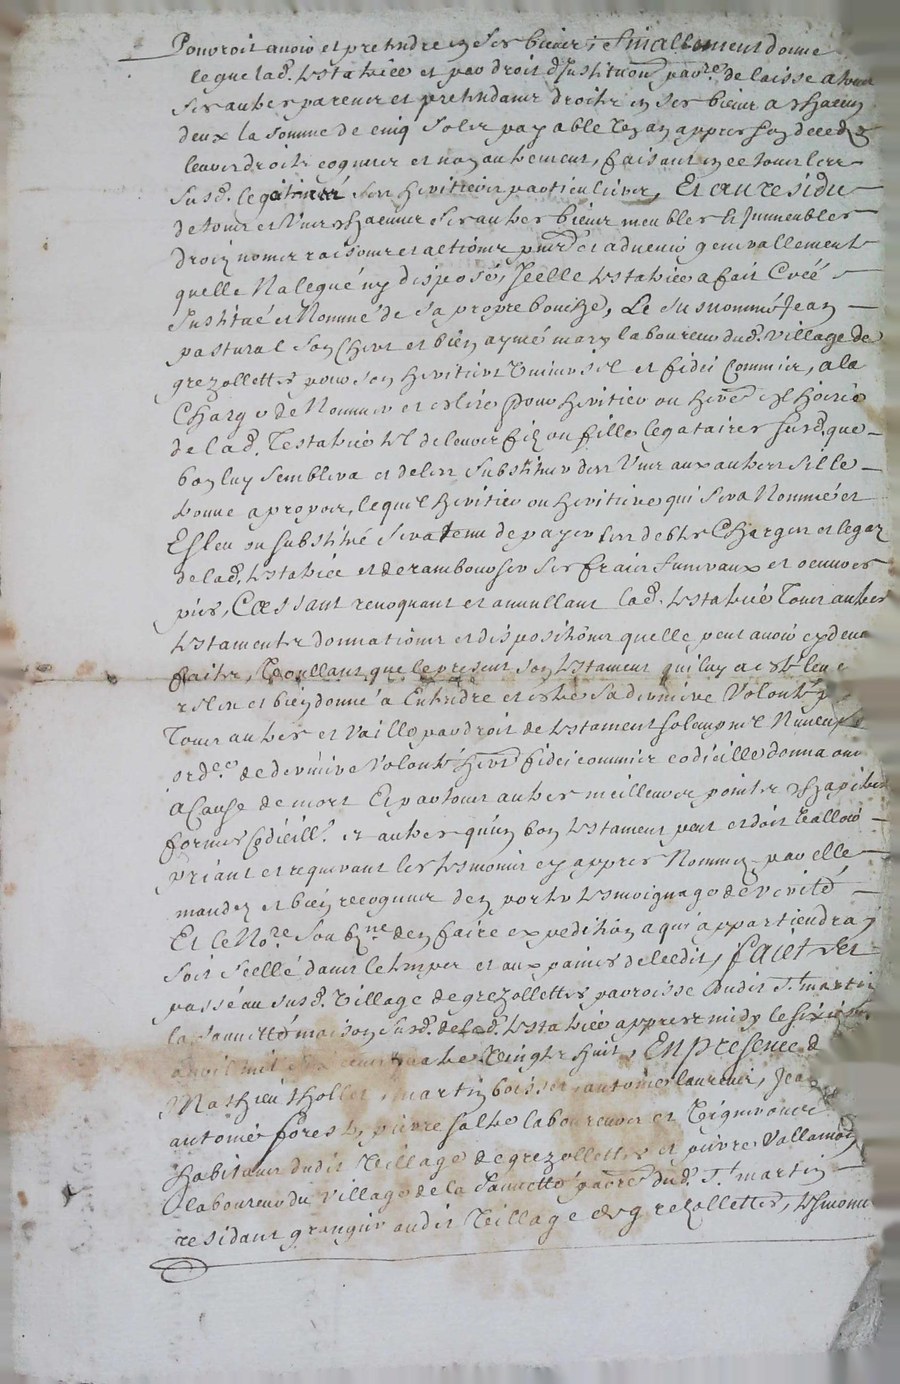 Pouvroit avoir et pretendre en ses biens, finallement donne
legue lad. testatrice et par droit d'Institution partre delaisse a tous
ses autres parents et pretendants droitz en ses biens a chacun
deux la somme de cinq solz payable un an appres son decedz
leurs droitz cognus et non autrement, faisant en ce tous les
susd. legataires ses heritiers particuliers, Et au residu
de tous et Uns chacuns ses autres biens meubles et Immeubles
droitz noms raisons et actions pntz et advenir generallement
quelle Na legué ny disposé, Icelle testatrice a fait Creé
Institué et Nommé de sa propre bouche, Le susnommé Jean
pastural son Cher et bien aymé mary laboureur dud. Village de
grezollettes pour son heritier Universel et fidei Commis, a la
Charge de Nommer et eslire pour heritier ou herre en l'hoirie
de lad. Testatrice tel de leurs filz ou filles legataires susd. que
bon luy semblera et de les substituer des Uns aux autres sil le
trouve a propos, lequel heritier ou heritiere qui sera Nommé et
Esleu ou substitué sera tenu de payer ses debtes Charges et legaz
de lad. testatrice et de rambourser ses fraiz funeraux et oeuvres
pies, Cassant revoquant et annullant lad. testatrice Tous autres
testaments donnations et dispositions quelle peut avoir cy devant
faites, Voullant que le present son testament qui luy a esté leu
relu et bien donné a Entendre et estre sa derniere Volonté
Tous autres et Vaille par droit de testament solempnel Nuncupatif
ordre de derniere Volonté herre fidei commis codicille donna
a Cause de mort Et par tous autres meilleurs pointz Chapitres
formes Codicill. et autres qu'un bon testament peut et doit Valloir
priant et requerant les tesmoins cy appres Nommez par elle
mandez et bien recognus den porter tesmoignage de verité
Et le Nore soubzne den faire expedition a qui appartiendra
soit scellé dans le temps et aux paines de leedit, faict Et
passé au susd. Village de grezollettes parroisse dudit St. martin
la sauvetté maison susd. de lad. testatrice appres midy le sixie
avril mil six cents quatre Vingts huit, En presence d
Mathieu thollet, martin boisset, antoine laurens, Jean
antoine forest, pierre faltre laboureurs et Vignerons
habitans dudit Village de grezollettes et pierre Vallamon
laboureur du Village de la Sauvetté parre dud. St. martin
residant granger audit Village de grezollettes, tesmoins